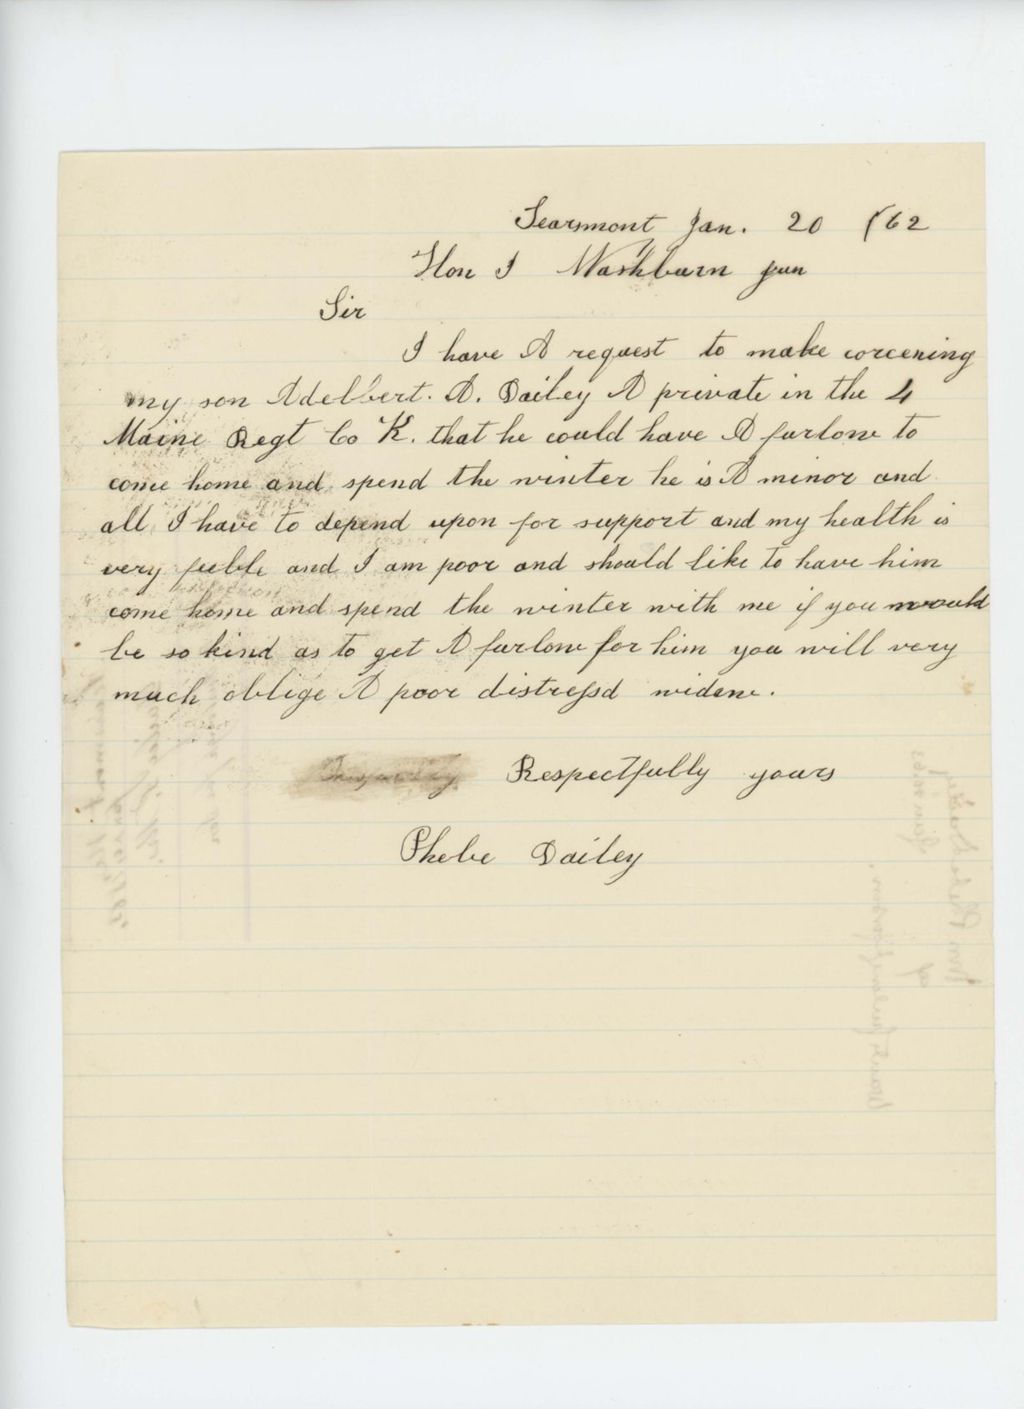 Searsmont Jan. 20 /62
Hon I Washburn jun
Sir
I have A request to make corcening
my son Adelbert. A. Dailey A private in the 4
Maine Regt Co K. that he could have A furlow to
come home and spend the winter he is A minor and
all I have to depend upon for support and my health is
very feeble and I am poor and should like to have him
come home and spend the winter with me if you would
be so kind as to get A furlow for him you will very
much oblige A poor distressd widow.
Respectfully yours
Phebe Dailey